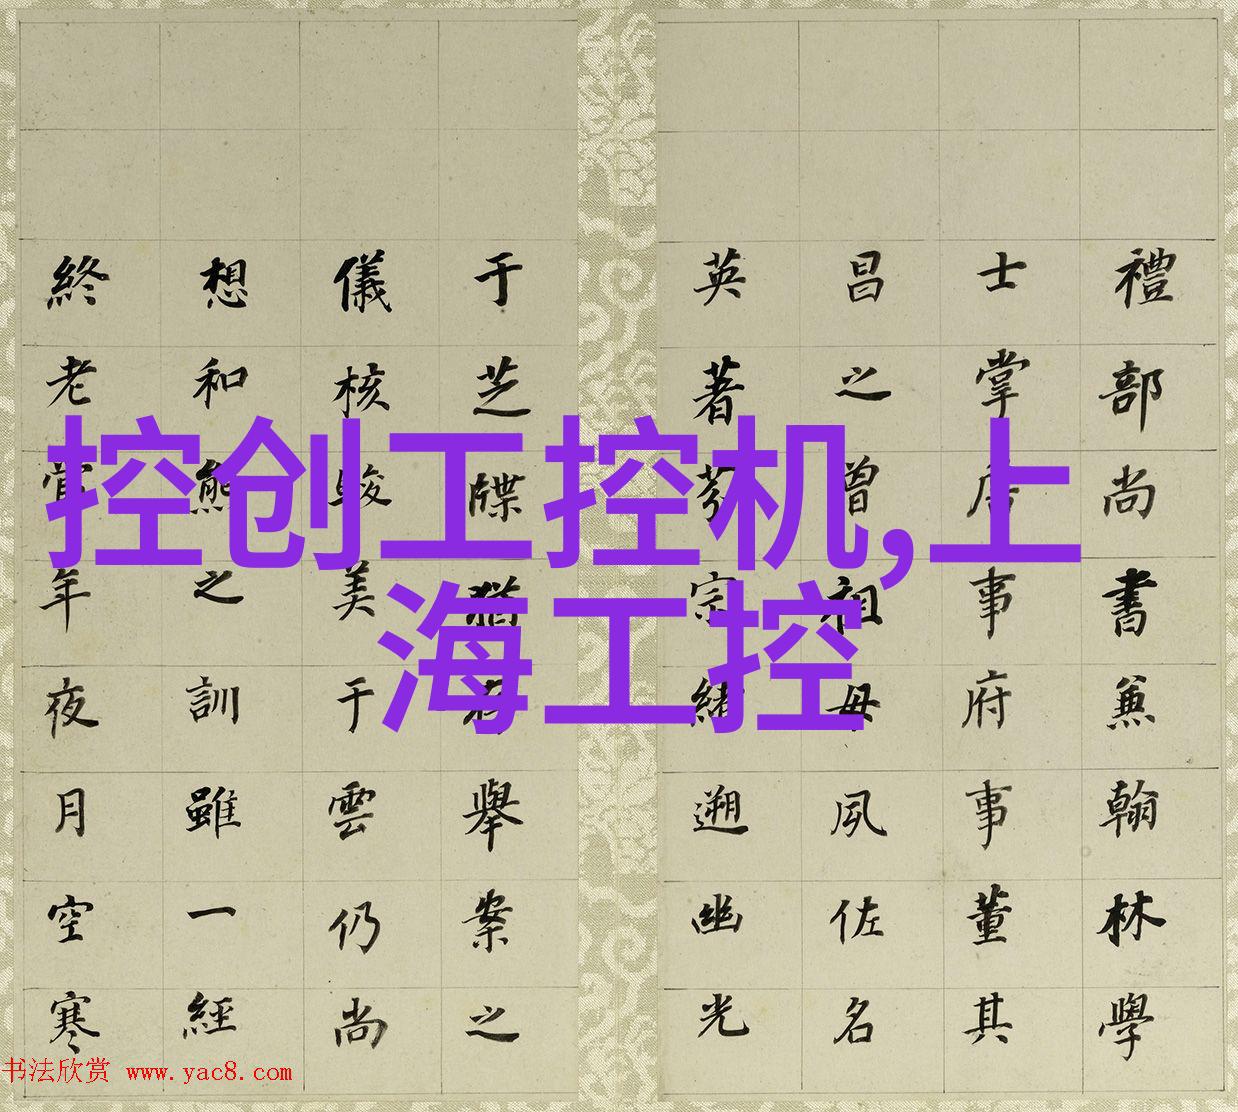 控创工控机,上
海工控
禮部尚書兼翰林學
士掌詹事府事董其
昌之曾祖母夙佐名
英著芬宗緒遡幽光
于芝牒猶舉案之
儀核駿美于雲仍尚
想和熊之訓雖一經
終老當年夜月空寒
书法欣赏 www.yac8.com